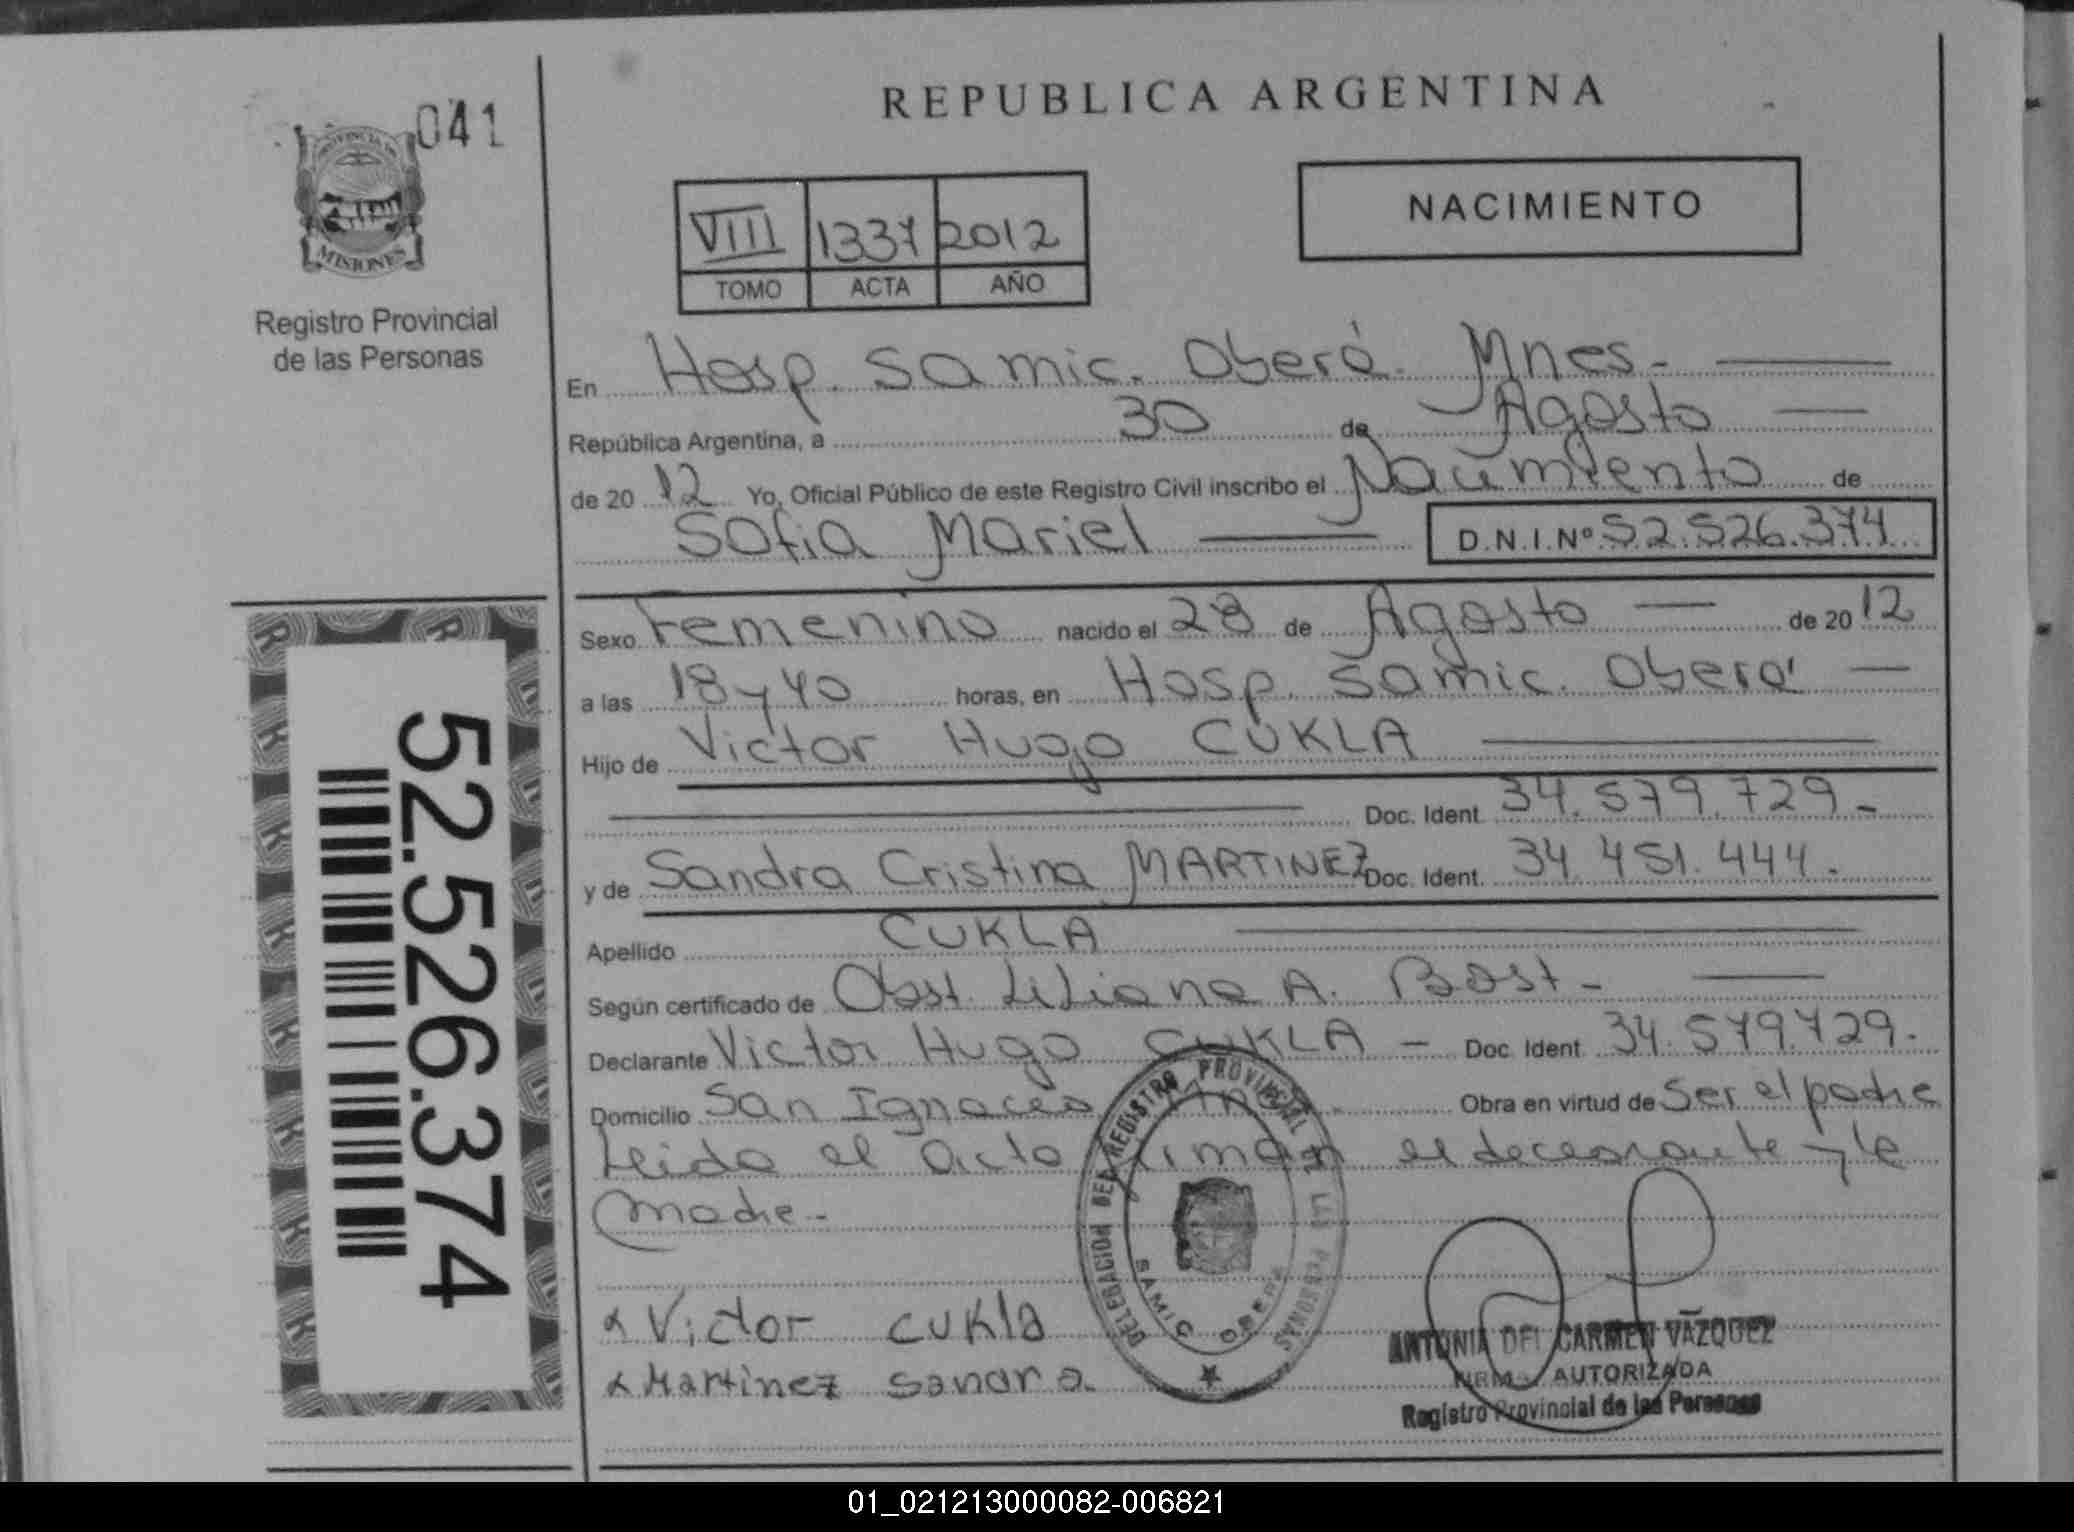 041
PROVINCIA DE
MISIONES
Registro Provincial
de las Personas
REPUBLICA ARGENTINA
NACIMIENTO
VIII 1337 2012
TOMO ACTA AÑO
En Hosp. Samic. Oberá. Mnes.
República Argentina, a 30 de Agosto
de 20 12 Yo, Oficial Público de este Registro Civil inscribo el Nacimiento de
Sofia Mariel D.N.I.Nº 52.526.374
Sexo Femenino nacido el 28 de Agosto de 20 12
a las 18 y 40 horas, en Hosp. Samic. Oberá
Hijo de Victor Hugo CUKLA
Doc. Ident. 34.579.729.-
y de Sandra Cristina MARTINEZ Doc. Ident. 34.451.444.-
Apellido CUKLA
Según certificado de Obst. Liliana A. Bast.-
Declarante Victor Hugo CUKLA - Doc. Ident. 34.579.729.
Domicilio San Ignacio Obra en virtud de Ser el padre
Leida el acta firman el declarante y la
madre.-
x Victor CUKla
x Martinez Sandra.
DELEGACION DEL REGISTRO PROVINCIAL DE LAS PERSONAS
SAMIC OBERA
ANTONIA DEL CARMEN VAZQUEZ
FIRMA AUTORIZADA
Registro Provincial de las Personas
52.526.374
01_021213000082-006821